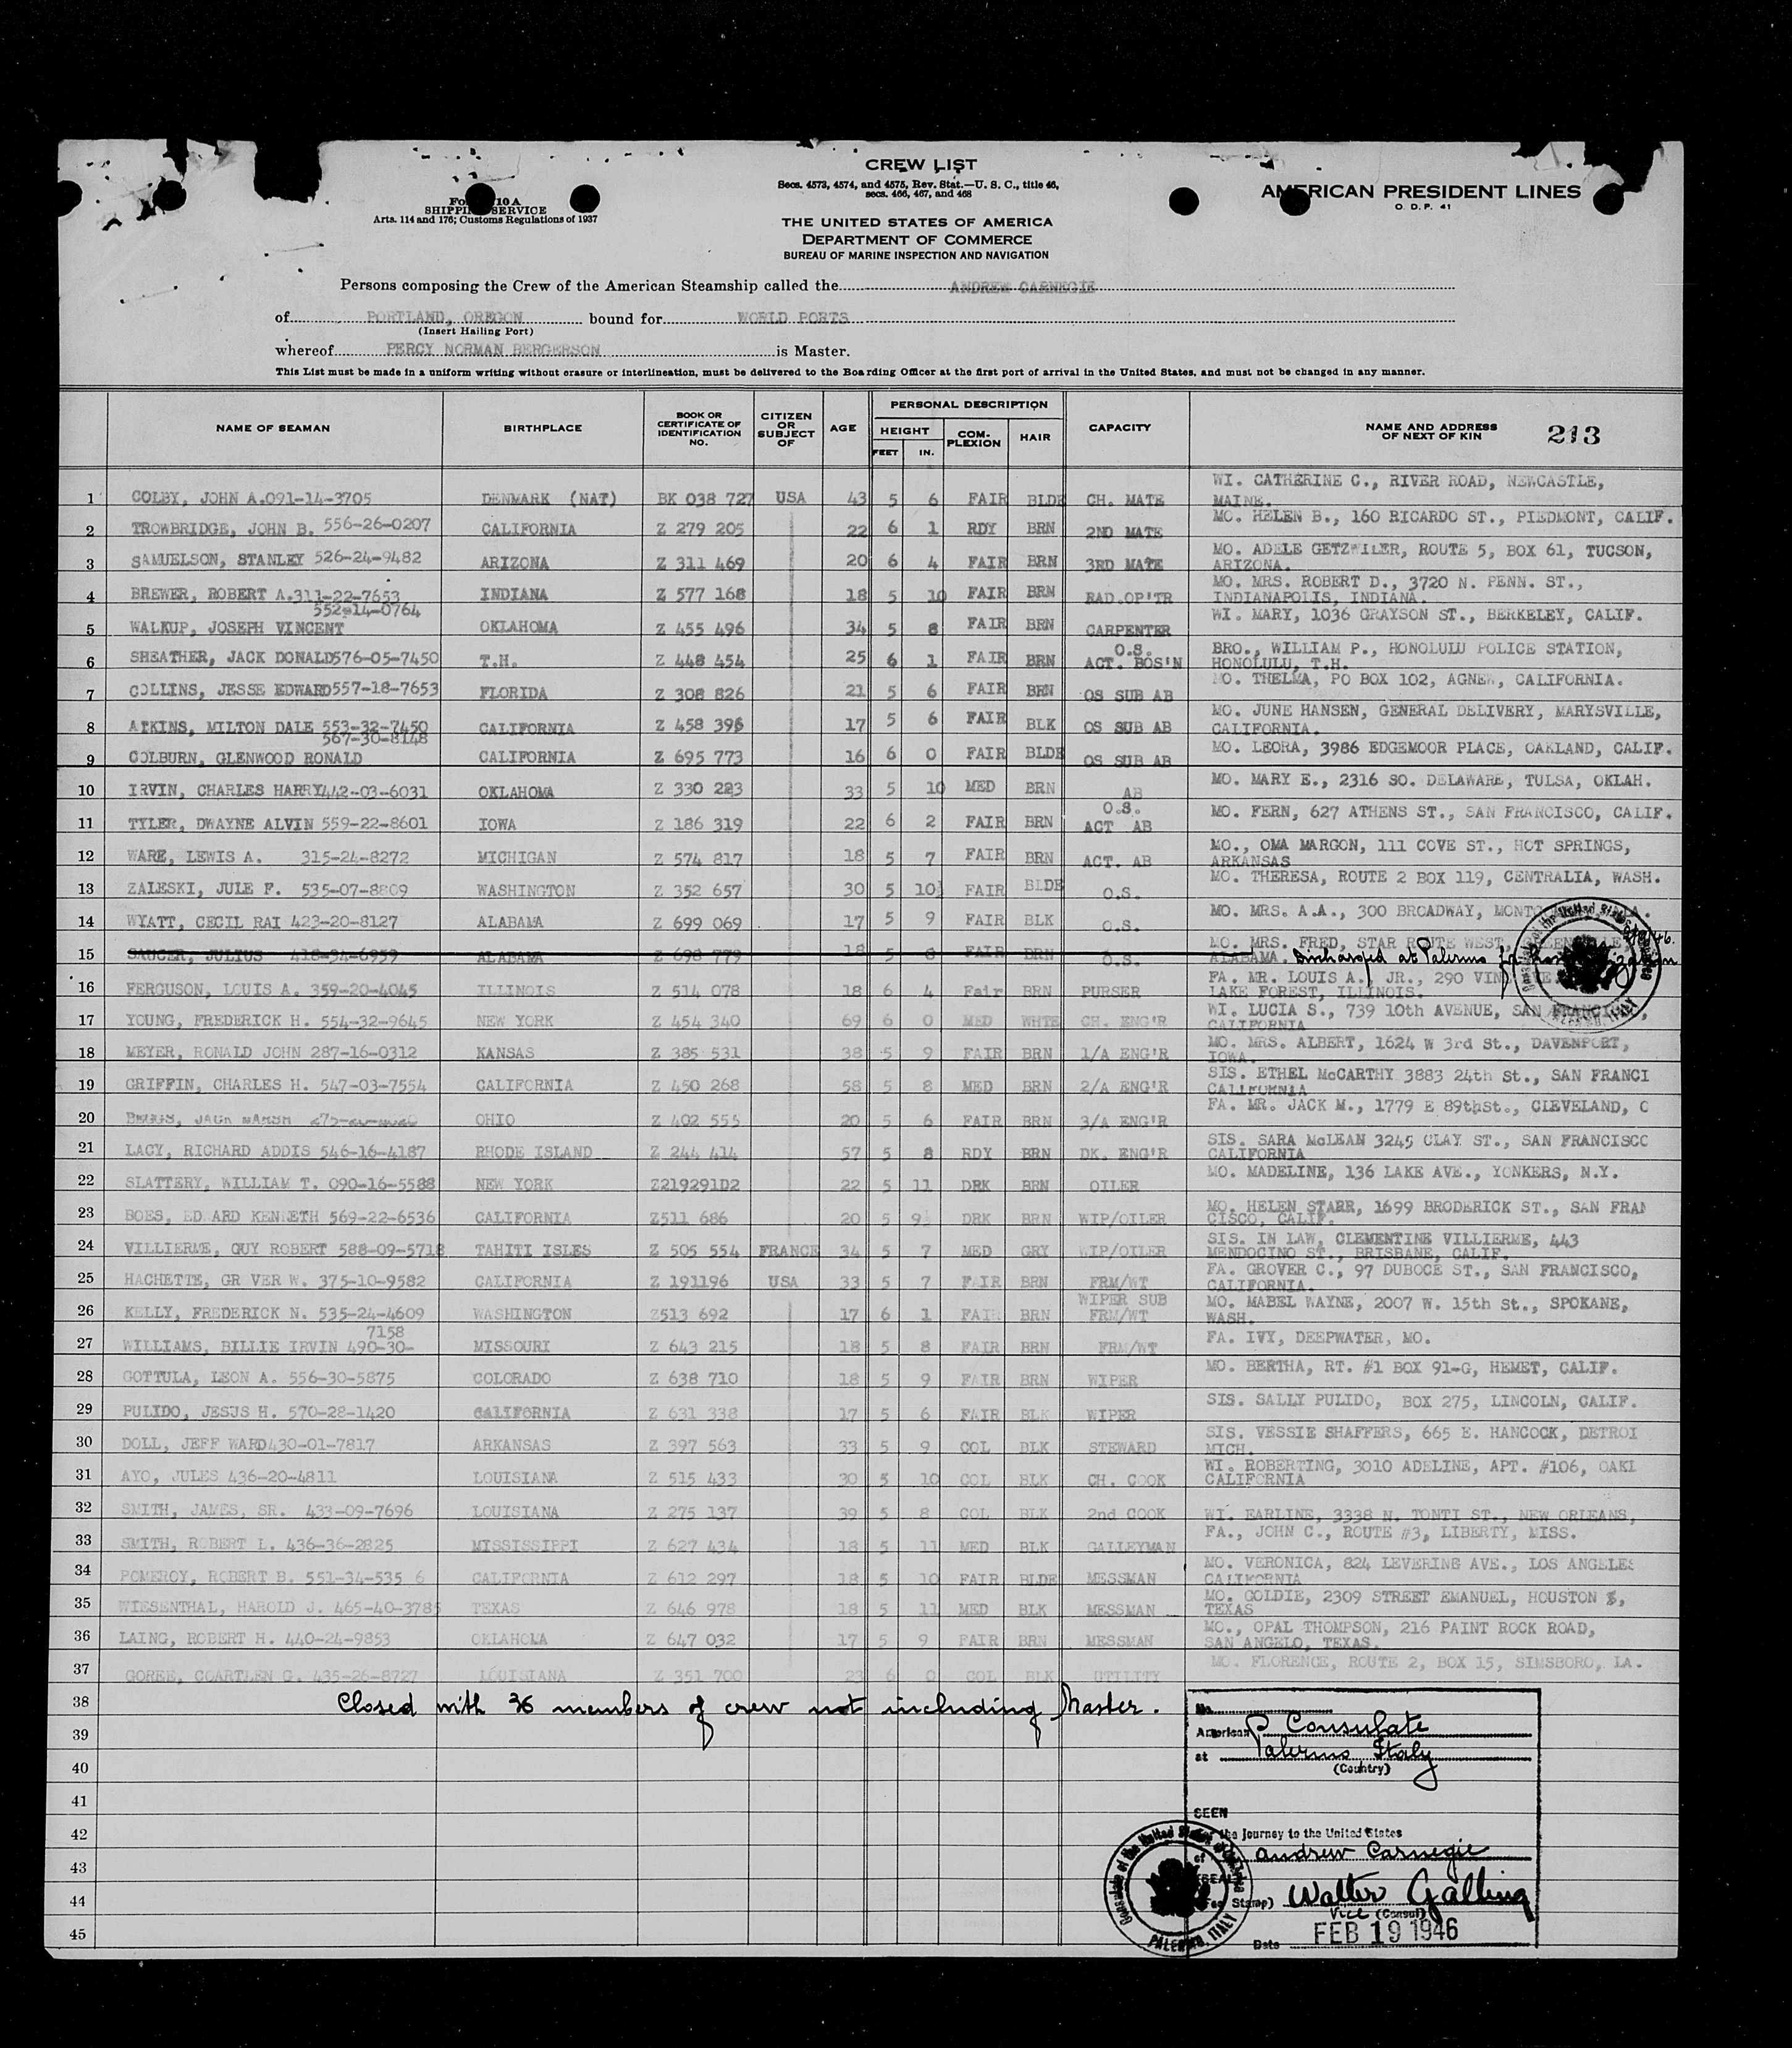 CREW LIST
Secs. 4573, 4574, and 4575, Rev. Stat.—U. S. C., title 46,
secs. 466, 467, and 468
10 A
SHIPPING SERVICE
Arts. 114 and 176; Customs Regulations of 1937
AMERICAN PRESIDENT LINES
O. D. P. 41
THE UNITED STATES OF AMERICA
DEPARTMENT OF COMMERCE
BUREAU OF MARINE INSPECTION AND NAVIGATION
Persons composing the Crew of the American Steamship called the ANDREW CARNEGIE
of PORTLAND, OREGON bound for WORLD PORTS
(Insert Hailing Port)
whereof PERCY NORMAN BERGERSON is Master.
This List must be made in a uniform writing without erasure or interlineation, must be delivered to the Boarding Officer at the first port of arrival in the United States, and must not be changed in any manner.
NAME OF SEAMAN BIRTHPLACE BOOK OR CERTIFICATE OF IDENTIFICATION NO. CITIZEN OR SUBJECT OF AGE PERSONAL DESCRIPTION HEIGHT FEET IN. COMPLEXION HAIR CAPACITY NAME AND ADDRESS OF NEXT OF KIN 213
1 COLBY, JOHN A. 091-14-3705 DENMARK (NAT) BK 038 727 USA 43 5 6 FAIR BLDE CH. MATE WI. CATHERINE C., RIVER ROAD, NEWCASTLE, MAINE.
2 TROWBRIDGE, JOHN B. 556-26-0207 CALIFORNIA Z 279 205 22 6 1 RDY BRN 2ND MATE MO. HELEN B., 160 RICARDO ST., PIEDMONT, CALIF.
3 SAMUELSON, STANLEY 526-24-9482 ARIZONA Z 311 469 20 6 4 FAIR BRN 3RD MATE MO. ADELE GETZWILER, ROUTE 5, BOX 61, TUCSON, ARIZONA.
4 BREWER, ROBERT A. 311-22-7653 INDIANA Z 577 168 18 5 10 FAIR BRN RAD.OP'TR MO. MRS. ROBERT D., 3720 N. PENN. ST., INDIANAPOLIS, INDIANA.
5 WALKUP, JOSEPH VINCENT 552-14-0764 OKLAHOMA Z 455 496 34 5 8 FAIR BRN CARPENTER WI. MARY, 1036 GRAYSON ST., BERKELEY, CALIF.
6 SHEATHER, JACK DONALD 576-05-7450 T.H. Z 448 454 25 6 1 FAIR BRN O.S. ACT. BOS'N BRO., WILLIAM P., HONOLULU POLICE STATION, HONOLULU, T.H.
7 COLLINS, JESSE EDWARD 557-18-7653 FLORIDA Z 308 826 21 5 6 FAIR BRN OS SUB AB MO. THELMA, PO BOX 102, AGNEW, CALIFORNIA.
8 ATKINS, MILTON DALE 553-32-7450 CALIFORNIA Z 458 396 17 5 6 FAIR BLK OS SUB AB MO. JUNE HANSEN, GENERAL DELIVERY, MARYSVILLE, CALIFORNIA.
9 COLBURN, GLENWOOD RONALD 567-30-8148 CALIFORNIA Z 695 773 16 6 0 FAIR BLDE OS SUB AB MO. LEORA, 3986 EDGEMOOR PLACE, OAKLAND, CALIF.
10 IRVIN, CHARLES HARRY 442-03-6031 OKLAHOMA Z 330 223 33 5 10 MED BRN AB MO. MARY E., 2316 SO. DELAWARE, TULSA, OKLAH.
11 TYLER, DWAYNE ALVIN 559-22-8601 IOWA Z 186 319 22 6 2 FAIR BRN O.S. ACT AB MO. FERN, 627 ATHENS ST., SAN FRANCISCO, CALIF.
12 WARE, LEWIS A. 315-24-8272 MICHIGAN Z 574 817 18 5 7 FAIR BRN ACT. AB MO., OMA MARGON, 111 COVE ST., HOT SPRINGS, ARKANSAS
13 ZALESKI, JULE F. 535-07-8809 WASHINGTON Z 352 657 30 5 10½ FAIR BLDE O.S. MO. THERESA, ROUTE 2 BOX 119, CENTRALIA, WASH.
14 WYATT, CECIL RAI 423-20-8127 ALABAMA Z 699 069 17 5 9 FAIR BLK O.S. MO. MRS. A.A., 300 BROADWAY,
15 SAUCER, JULIUS 418-34-6959 ALABAMA Z 698 779 18 5 8 FAIR BRN O.S. MO. MRS. FRED, STAR ROUTE WEST, ALABAMA. Discharged at Palermo
16 FERGUSON, LOUIS A. 359-20-4045 ILLINOIS Z 514 078 18 6 4 Fair BRN PURSER FA. MR. LOUIS A., JR., 290 VINE AVE. LAKE FOREST, ILLINOIS.
17 YOUNG, FREDERICK H. 554-32-9645 NEW YORK Z 454 340 69 6 0 MED WHTE CH. ENG'R WI. LUCIA S., 739 10th AVENUE, SAN FRANCISCO, CALIFORNIA
18 MEYER, RONALD JOHN 287-16-0312 KANSAS Z 385 531 38 5 9 FAIR BRN 1/A ENG'R MO. MRS. ALBERT, 1624 W 3rd St., DAVENPORT, IOWA.
19 GRIFFIN, CHARLES H. 547-03-7554 CALIFORNIA Z 450 268 58 5 8 MED BRN 2/A ENG'R SIS. ETHEL McCARTHY 3883 24th St., SAN FRANCI CALIFORNIA
20 BEGGS, JACK MARSH OHIO Z 402 555 20 5 6 FAIR BRN 3/A ENG'R FA. MR. JACK M., 1779 E 89thSt., CLEVELAND, O
21 LACY, RICHARD ADDIS 546-16-4187 RHODE ISLAND Z 244 414 57 5 8 RDY BRN DK. ENG'R SIS. SARA McLEAN 3245 CLAY ST., SAN FRANCISCO CALIFORNIA
22 SLATTERY, WILLIAM T. 090-16-5588 NEW YORK Z219291D2 22 5 11 DRK BRN OILER MO. MADELINE, 136 LAKE AVE., YONKERS, N.Y.
23 BOES, EDWARD KENNETH 569-22-6536 CALIFORNIA Z511 686 20 5 9½ DRK BRN WIP/OILER MO. HELEN STARR, 1699 BRODERICK ST., SAN FRAN CISCO, CALIF.
24 VILLIERME, GUY ROBERT 588-09-5718 TAHITI ISLES Z 505 554 FRANCE 34 5 7 MED GRY WIP/OILER SIS. IN LAW, CLEMENTINE VILLIERME, 443 MENDOCINO ST., BRISBANE, CALIF.
25 HACHETTE, GR VER W. 375-10-9582 CALIFORNIA Z 191196 USA 33 5 7 FAIR BRN FRM/WT FA. GROVER C., 97 DUBOCE ST., SAN FRANCISCO, CALIFORNIA.
26 KELLY, FREDERICK N. 535-24-4609 WASHINGTON Z513 692 17 6 1 FAIR BRN WIPER SUB FRM/WT MO. MABEL WAYNE, 2007 W. 15th St., SPOKANE, WASH.
27 WILLIAMS, BILLIE IRVIN 490-30-7158 MISSOURI Z 643 215 18 5 8 FAIR BRN FRM/WT FA. IVY, DEEPWATER, MO.
28 GOTTULA, LEON A. 556-30-5875 COLORADO Z 638 710 18 5 9 FAIR BRN WIPER MO. BERTHA, RT. #1 BOX 91-G, HEMET, CALIF.
29 PULIDO, JESUS H. 570-28-1420 CALIFORNIA Z 631 338 17 5 6 FAIR BLK WIPER SIS. SALLY PULIDO, BOX 275, LINCOLN, CALIF.
30 DOLL, JEFF WARD 430-01-7817 ARKANSAS Z 397 563 33 5 9 COL BLK STEWARD SIS. VESSIE SHAFFERS, 665 E. HANCOCK, DETROI MICH.
31 AYO, JULES 436-20-4811 LOUISIANA Z 515 433 30 5 10 COL BLK CH. COOK WI. ROBERTING, 3010 ADELINE, APT. #106, OAKL CALIFORNIA
32 SMITH, JAMES, SR. 433-09-7696 LOUISIANA Z 275 137 39 5 8 COL BLK 2nd COOK WI. EARLINE, 3338 N. TONTI ST., NEW ORLEANS,
33 SMITH, ROBERT L. 436-36-2825 MISSISSIPPI Z 627 434 18 5 11 MED BLK GALLEYMAN FA., JOHN C., ROUTE #3, LIBERTY, MISS.
34 POMEROY, ROBERT B. 551-34-535 6 CALIFORNIA Z 612 297 18 5 10 FAIR BLDE MESSMAN MO. VERONICA, 824 LEVERING AVE., LOS ANGELES CALIFORNIA
35 WIESENTHAL, HAROLD J. 465-40-3785 TEXAS Z 646 978 18 5 11 MED BLK MESSMAN MO. GOLDIE, 2309 STREET EMANUEL, HOUSTON, TEXAS
36 LAING, ROBERT H. 440-24-9853 OKLAHOMA Z 647 032 17 5 9 FAIR BRN MESSMAN MO., OPAL THOMPSON, 216 PAINT ROCK ROAD, SAN ANGELO, TEXAS.
37 GOREE, COARTLEN G. 435-26-8727 LOUISIANA Z 351 700 23 6 0 COL BLK UTILITY MO. FLORENCE, ROUTE 2, BOX 15, SIMSBORO, LA.
38 Closed with 36 members of crew not including Master.
39
40
41
42
43
44
45
No.
American Consulate
at Palermo Italy
(Country)
SEEN
the journey to the United States
of Andrew Carnegie
(SEAL)
(Fee Stamp) Walter Galling
Vice (Consul)
Date FEB 19 1946
PALERMO, ITALY